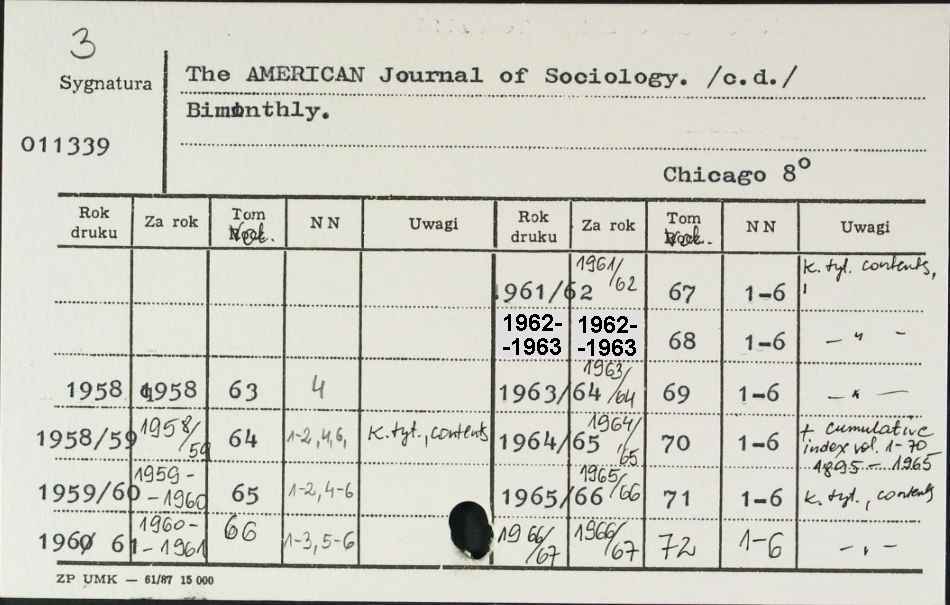 3
Sygnatura
The AMERICAN Journal of Sociology. /c.d./
Bimonthly.
011339
Chicago 8°
Rok druku | Za rok | Tom | NN | Uwagi | Rok druku | Za rok | Tom | NN | Uwagi
1961/62 | 1961/62 | 67 | 1-6 | k. tyt. contents,
1962--1963 | 1962--1963 | 68 | 1-6 | — " —
1958 | 1958 | 63 | 4 | 1963/64 | 1963/64 | 69 | 1-6 | — " —
1958/59 | 1958/59 | 64 | 1-2,4,6, | k. tyt., contents | 1964/65 | 1964/65 | 70 | 1-6 | + cumulative index vol. 1-70 1895 - 1965
1959/60 | 1959--1960 | 65 | 1-2,4-6 | 1965/66 | 1965/66 | 71 | 1-6 | k. tyt., contents
1960 61 | 1960--1961 | 66 | 1-3,5-6 | 1966/67 | 1966/67 | 72 | 1-6 | — " —
ZP UMK — 61/87 15 000